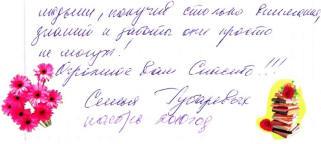 людьми, получив столько внимания,
знаний и заботы они просто
не могут!
Огромное Вам Спасибо!!!
Семья
ноябрь 2010год